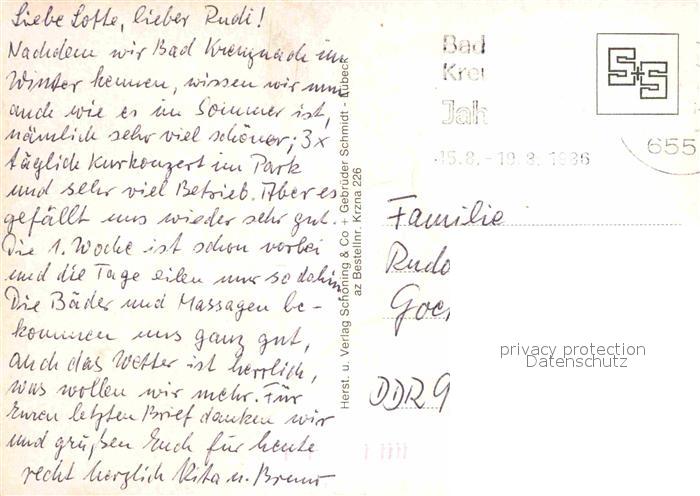 Liebe Lotte, lieber Rudi!
Nachdem wir Bad Kreuznach im
Winter kennen, wissen wir nun
auch wie es im Sommer ist,
nämlich sehr viel schöner; 3x
täglich Kurkonzert im Park
und sehr viel Betrieb. Aber es
gefällt uns wieder sehr gut.
Die 1. Woche ist schon vorbei
und die Tage eilen nur so dahin
Die Bäder und Massagen be-
kommen uns ganz gut,
auch das Wetter ist herrlich,
was wollen wir mehr. Für
Euren letzten Brief danken wir
und grüßen Euch für heute
recht herzlich Rita u. Bruno
Herst. u. Verlag Schöning & Co + Gebrüder Schmidt - Lübeck
az Bestellnr. Krzna 226
Bad
Kreu
Jah
15.8. - 19.8. 1986
655
S+S
Familie
Rudo
Goe
DDR 9
privacy protection
Datenschutz